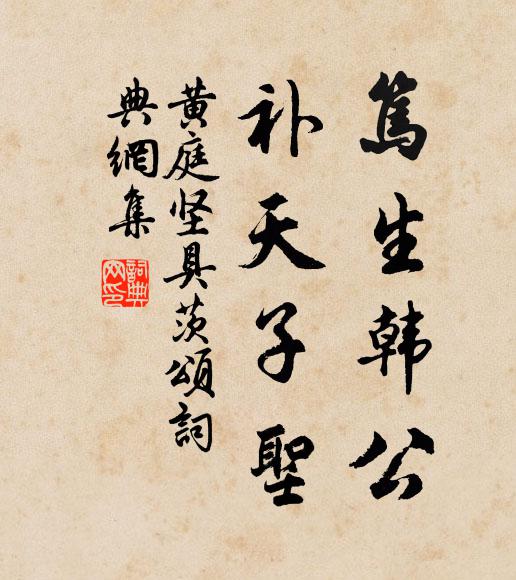 篤生韩公
补天子聖
黄庭坚具茨頌詞
典網集
詞典网印